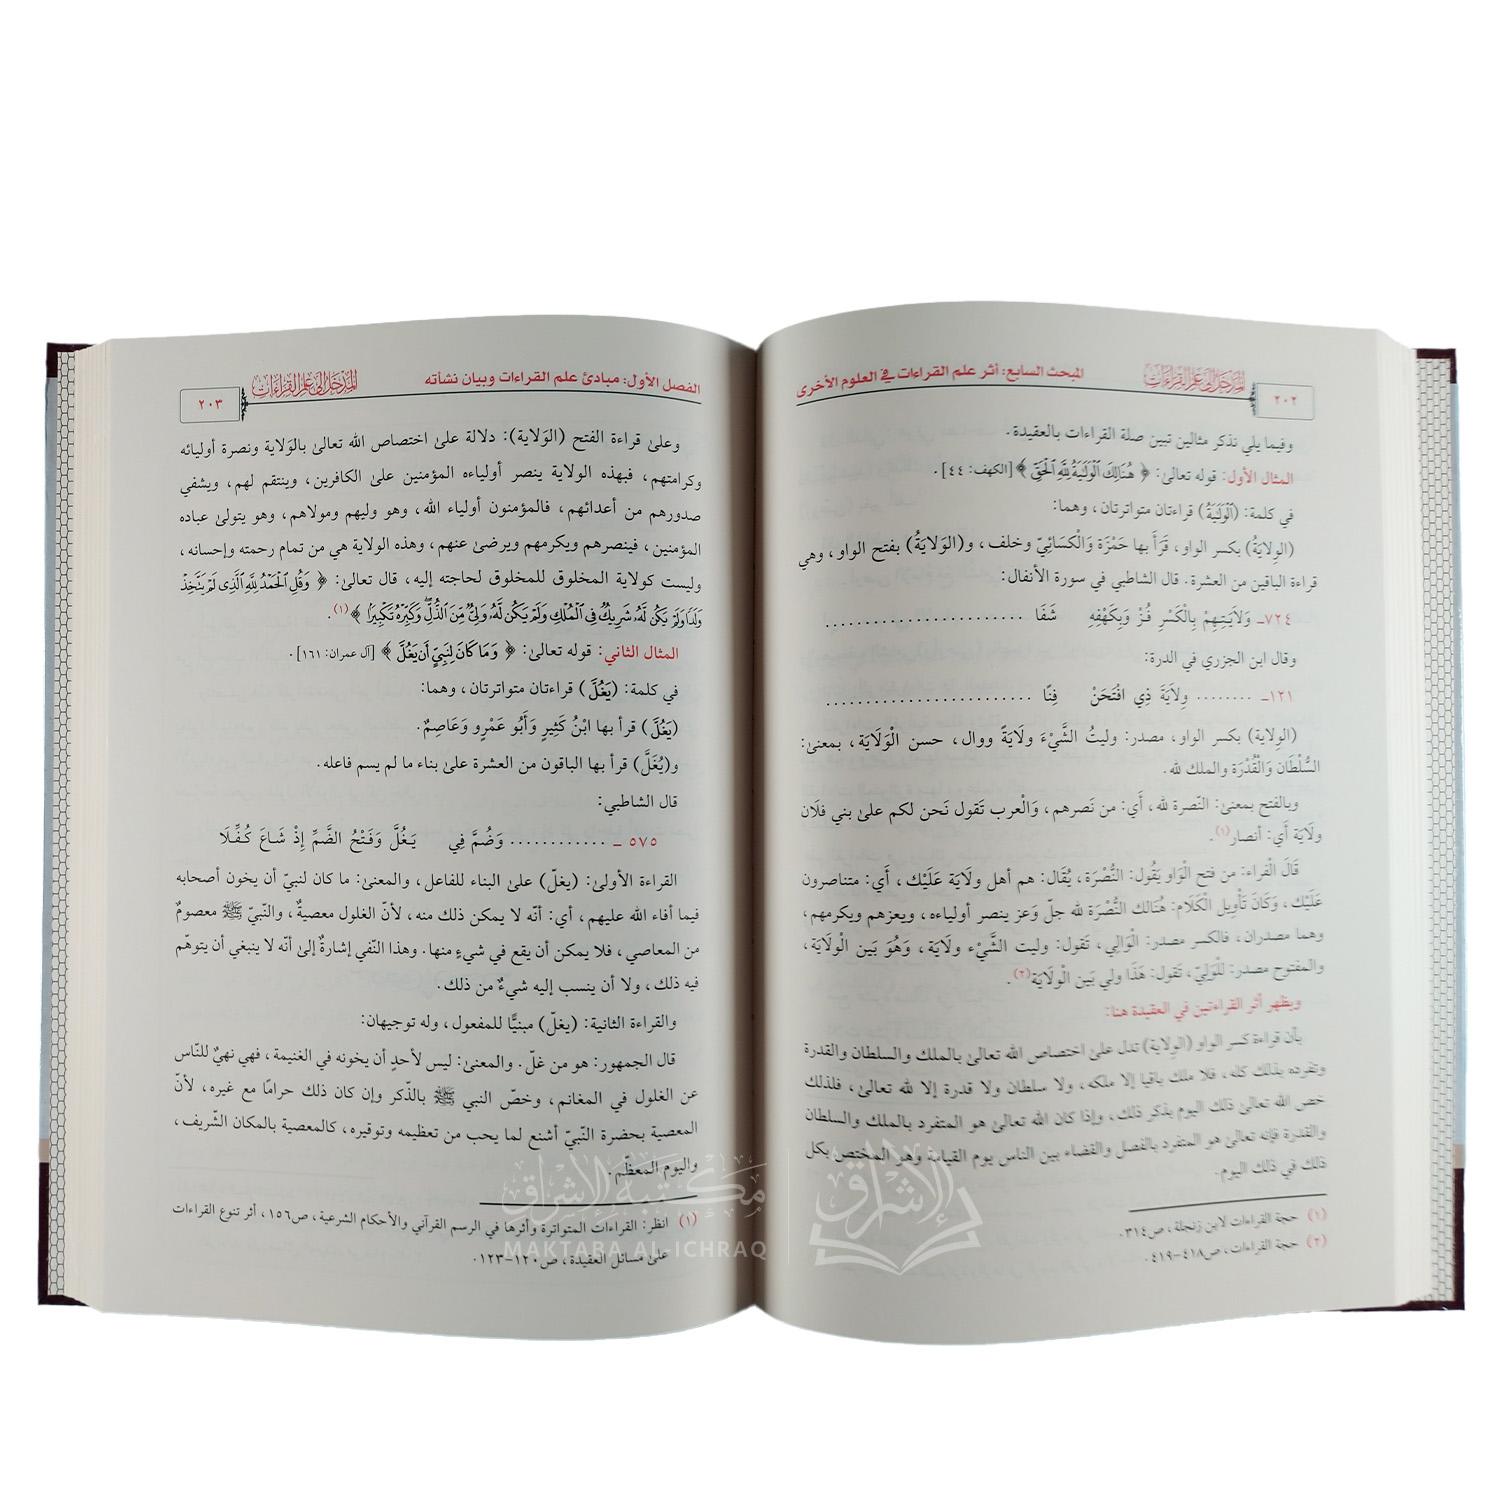 ٢٠٢
المدخل إلى علم القراءات
المبحث السابع: أثر علم القراءات في العلوم الأخرى
وفيما يلي نذكر مثالين تبين صلة القراءات بالعقيدة.
المثال الأول: قوله تعالىٰ: ﴿ هُنَالِكَ ٱلْوَلَٰيَةُ لِلَّهِ ٱلْحَقِّ ﴾ [الكهف: ٤٤].
في كلمة: (ٱلْوَلَٰيَةُ) قراءتان متواترتان، وهما:
(الوِلايَةُ) بكسر الواو، قَرَأَ بها حَمْزَة وَالْكسَائِيّ وخلف، و(الوَلايَةُ) بفتح الواو، وهي
قراءة الباقين من العشرة. قال الشاطبي في سورة الأنفال:
٧٢٤ـ وَلايَتِهِمْ بِالْكَسْرِ فُزْ وَبِكَهْفِهِ شَفَا ........................
وقال ابن الجزري في الدرة:
١٢١ـ ........ وِلاَيَةَ ذِي افْتَحَنْ فِنًا ........................
(الوِلاية) بكسر الواو، مصدر: وليتُ الشَّيْءَ ولَايَةً ووال، حسن الْوَلَايَة، بمعنىٰ:
السُّلْطَان وَالْقُدْرَة والملك لله.
وبالفتح بمعنىٰ: النّصرة لله، أَي: من نَصرهم، وَالْعرب تَقول نَحن لكم علىٰ بني فلَان
ولَايَة أَي: أنصار(١).
قَالَ الْفراء: من فتح الْوَاو يَقُول: النُّصْرَة، يُقَال: هم أهل ولَايَة عَلَيْك، أَي: متناصرون
عَلَيْك، وَكَانَ تَأْوِيل الْكَلَام: هُنَالك النُّصْرَة لله جلّ وَعز ينصر أولياءه، ويعزهم ويكرمهم،
وهما مصدران، فالكسر مصدر: الْوَالِي، تَقول: وليت الشَّيْء ولَايَة، وَهُوَ بَين الْولَايَة،
والمفتوح مصدر: للْوَلِيّ، تَقول: هَذَا ولي بَين الْولَايَة(٢).
ويظهر أثر القراءتين في العقيدة هنا:
بأن قراءة كسر الواو (الولاية) تدل علىٰ اختصاص الله تعالىٰ بالملك والسلطان والقدرة
وتفرده بذلك كله، فلا ملك باقيا إلا ملكه، ولا سلطان ولا قدرة إلا لله تعالىٰ، فلذلك
خص الله تعالىٰ ذلك اليوم بذكر ذلك، وإذا كان الله تعالىٰ هو المتفرد بالملك والسلطان
والقدرة فإنه تعالىٰ هو المتفرد بالفصل والقضاء بين الناس يوم القيامة وهو المختص بكل
ذلك في ذلك اليوم.
(١) حجة القراءات لابن زنجلة، ص٣١٤.
(٢) حجة القراءات، ص٤١٨-٤١٩.
الفصل الأول: مبادئ علم القراءات وبيان نشأته
المدخل إلى علم القراءات
٢٠٣
وعلىٰ قراءة الفتح (الوَلاية): دلالة علىٰ اختصاص الله تعالىٰ بالوَلاية ونصرة أوليائه
وكرامتهم، فبهذه الولاية ينصر أولياءه المؤمنين علىٰ الكافرين، وينتقم لهم، ويشفي
صدورهم من أعدائهم، فالمؤمنون أولياء الله، وهو وليهم ومولاهم، وهو يتولىٰ عباده
المؤمنين، فينصرهم ويكرمهم ويرضىٰ عنهم، وهذه الولاية هي من تمام رحمته وإحسانه،
وليست كولاية المخلوق للمخلوق لحاجته إليه، قال تعالىٰ: ﴿ وَقُلِ ٱلْحَمْدُ لِلَّهِ ٱلَّذِى لَمْ يَتَّخِذْ
وَلَدًا وَلَمْ يَكُن لَّهُۥ شَرِيكٌ فِى ٱلْمُلْكِ وَلَمْ يَكُن لَّهُۥ وَلِىٌّ مِّنَ ٱلذُّلِّ وَكَبِّرْهُ تَكْبِيرًا ﴾(١).
المثال الثاني: قوله تعالىٰ: ﴿ وَمَا كَانَ لِنَبِىٍّ أَن يَغُلَّ ﴾ [آل عمران: ١٦١].
في كلمة: (يَغُلَّ) قراءتان متواترتان، وهما:
(يَغُلَّ) قرأ بها ابْنُ كَثِيرٍ وَأَبُو عَمْرٍو وَعَاصِمٌ.
و(يُغَلَّ) قرأ بها الباقون من العشرة علىٰ بناء ما لم يسم فاعله.
قال الشاطبي:
٥٧٥ ـ ............ وَضُمَّ فِي يَغُلَّ وَفَتْحُ الضَّمِّ إِذْ شَاعَ كُفِّلَا
القراءة الأولىٰ: (يغلّ) علىٰ البناء للفاعل، والمعنىٰ: ما كان لنبيّ أن يخون أصحابه
فيما أفاء الله عليهم، أي: أنّه لا يمكن ذلك منه، لأنّ الغلول معصيةٌ، والنّبيّ ﷺ معصومٌ
من المعاصي، فلا يمكن أن يقع في شيءٍ منها. وهذا النّفي إشارةٌ إلىٰ أنّه لا ينبغي أن يتوهّم
فيه ذلك، ولا أن ينسب إليه شيءٌ من ذلك.
والقراءة الثانية: (يغلّ) مبنيًّا للمفعول، وله توجيهان:
قال الجمهور: هو من غلّ. والمعنىٰ: ليس لأحدٍ أن يخونه في الغنيمة، فهي نهيٌ للنّاس
عن الغلول في المغانم، وخصّ النبي ﷺ بالذّكر وإن كان ذلك حرامًا مع غيره، لأنّ
المعصية بحضرة النّبيّ أشنع لما يحب من تعظيمه وتوقيره، كالمعصية بالمكان الشّريف،
واليوم المعظّم.
(١) انظر: القراءات المتواترة وأثرها في الرسم القرآني والأحكام الشرعية، ص١٥٦، أثر تنوع القراءات
علىٰ مسائل العقيدة، ص١٢٠-١٢٣.
مكتبة الإشراق
MAKTABA AL-ICHRAQ
الإشراق